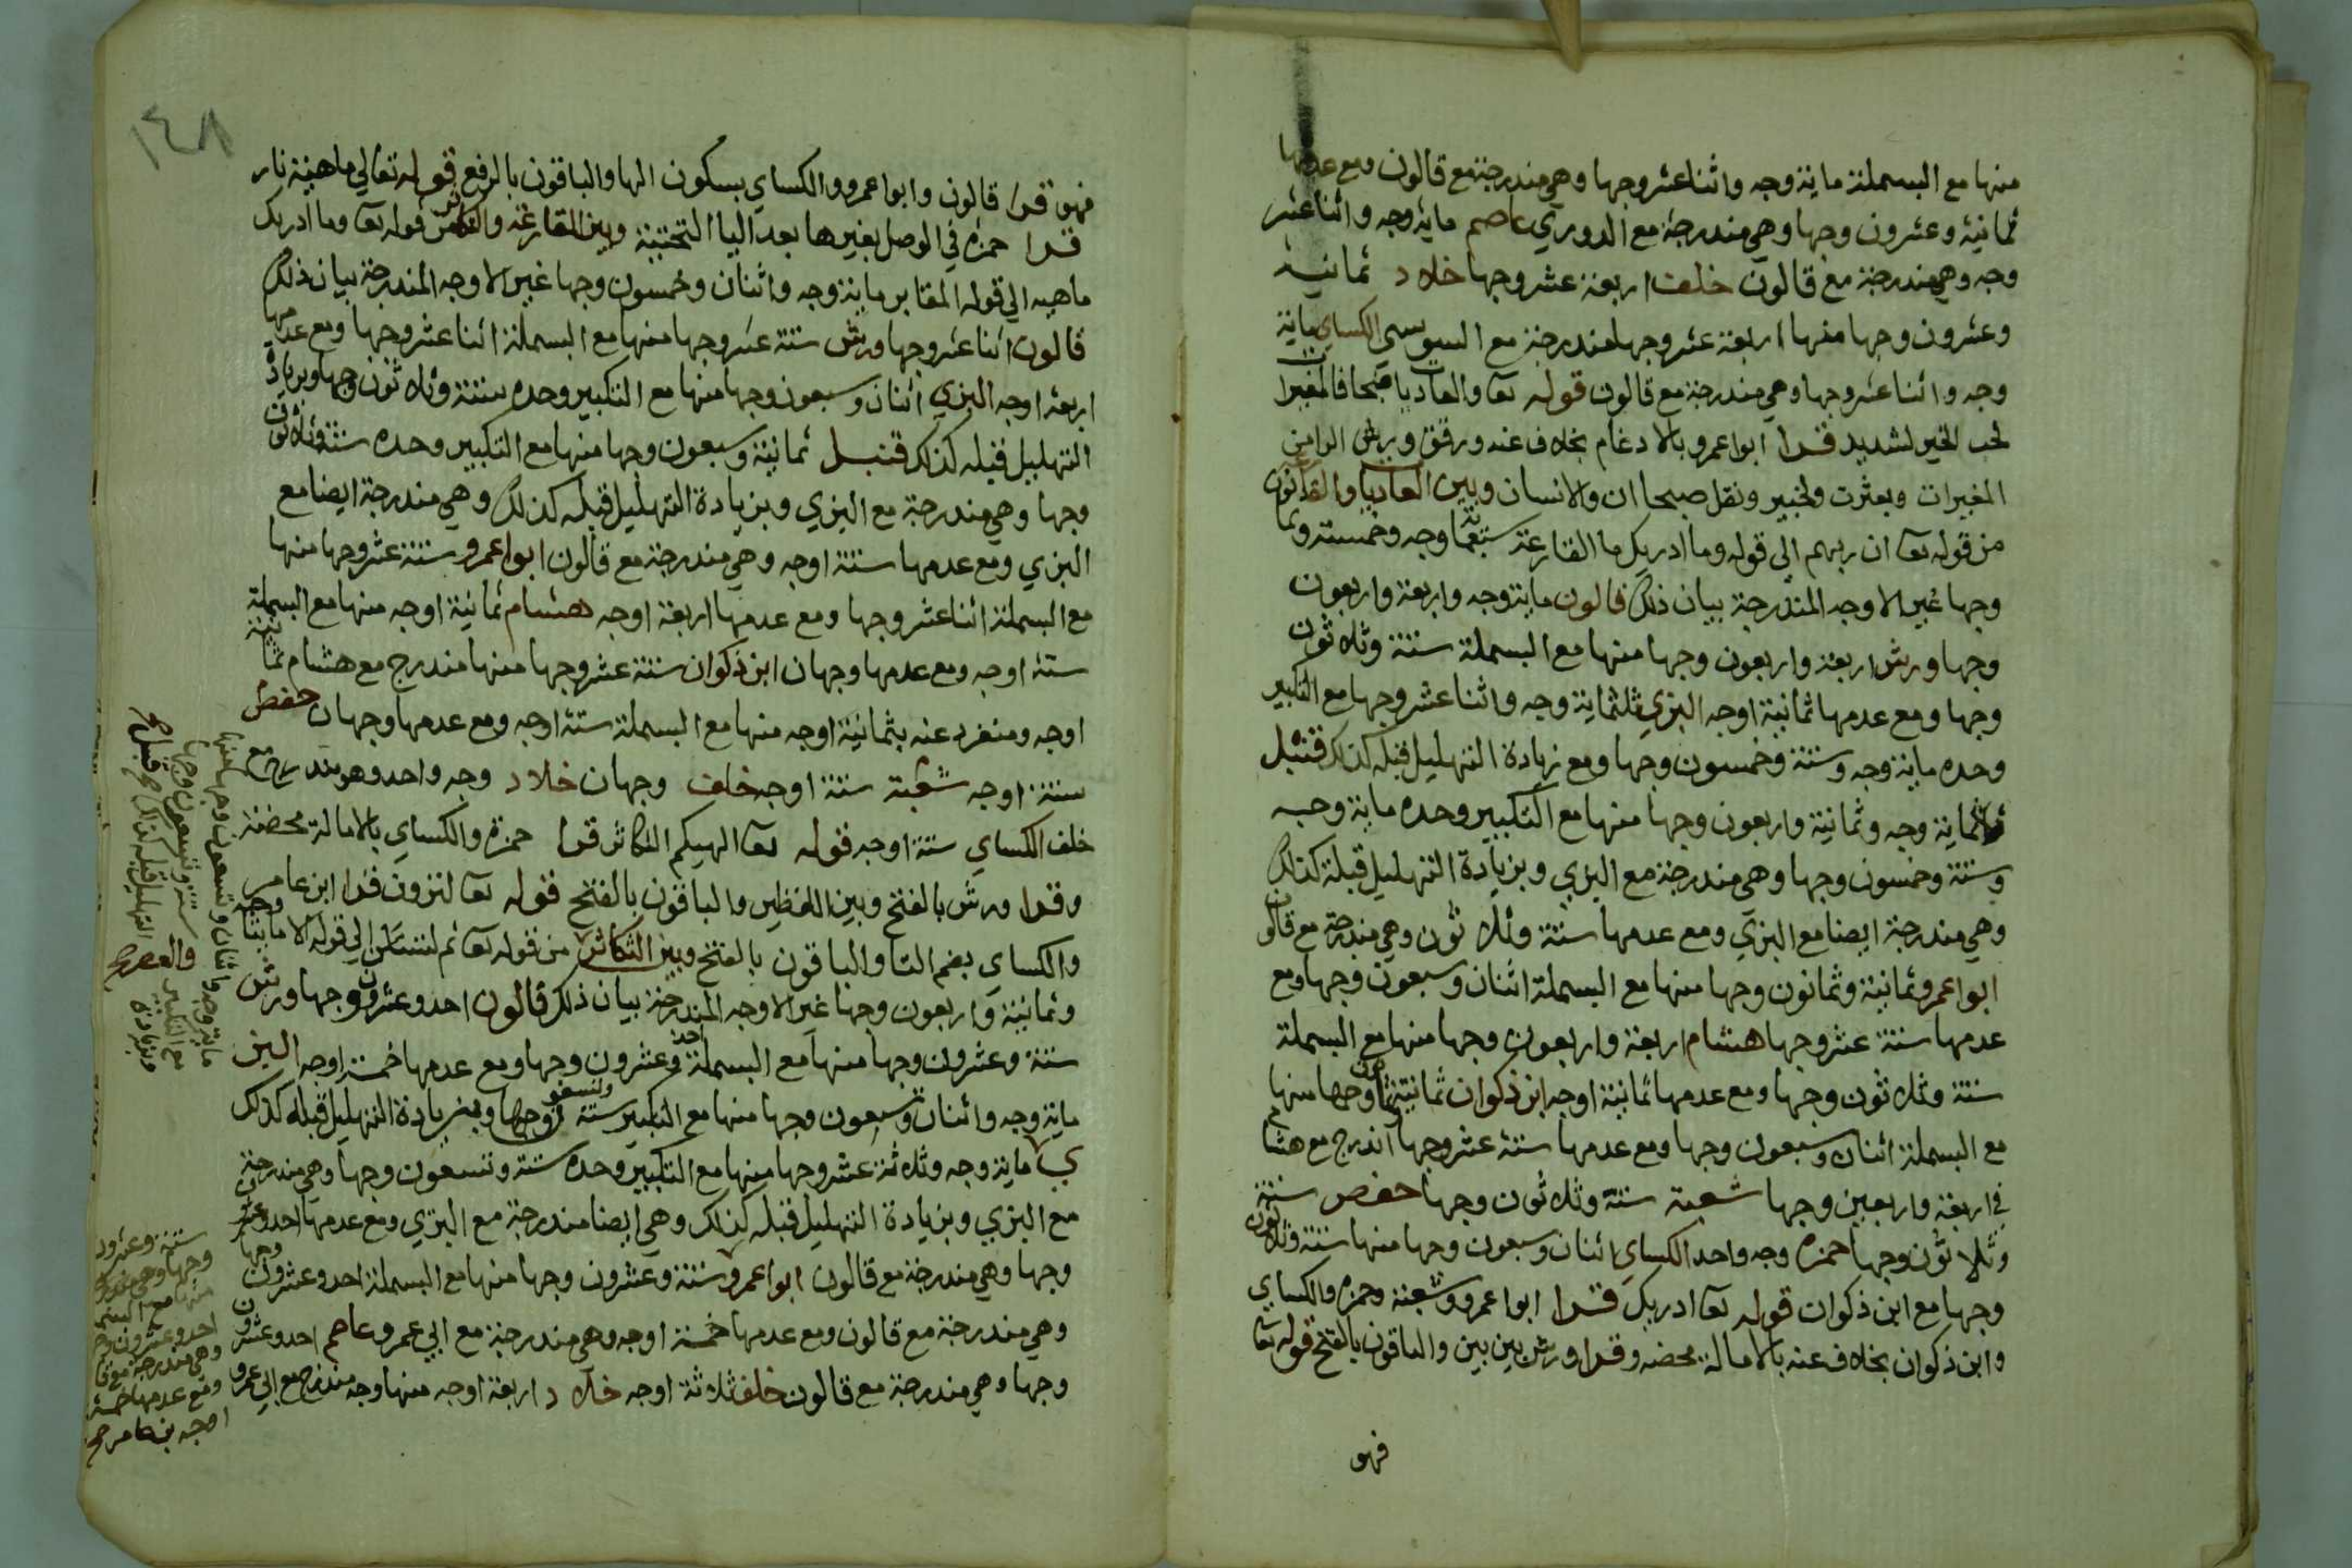 منها مع البسملة ماية وجه واثنا عشر وجها وهي مندرجة مع قالون ومع عدمها
ثمانية وعشرون وجها وهي مندرجة مع الدوري عاصم ماية وجه واثنا عشر
وجه وهي مندرجة مع قالون خلف اربعة عشر وجها خلاد ثمانية
وعشرون وجها منها اربعة عشر وجها مندرجة مع السوسي الكساي ماية
وجه واثنا عشر وجها وهي مندرجة مع قالون قوله تعا والعاديات ضبحا فالمغيرات
لحب الخير لشديد قرا ابوا عمرو بالادغام بخلاف عنه ورقق ورش الرا من
المغيرات وبعثرت ولخبير ونقل صبحا ان والانسان وبين العاديات والقارعة
من قوله تعا ان ربهم الى قوله وما ادريك ما القارعة سبعماية وجه وخمسة وثمانون
وجها غير الاوجه المندرجة بيان ذلك قالون ماية وجه واربعة واربعون
وجها ورش اربعة واربعون وجها منها مع البسملة ستة وثلاثون
وجها ومع عدمها ثمانية اوجه البزي ثلثماية وجه واثنا عشر وجها مع التكبير
وحده ماية وجه وستة وخمسون وجها ومع زيادة التهليل قبله كذلك قنبل
ثلاثماية وجه وثمانية واربعون وجها منها مع التكبير وحده ماية وجه
وستة وخمسون وجها وهي مندرجة مع البزي وبزيادة التهليل قبله كذلك
وهي مندرجة ايضا مع البزي ومع عدمها ستة وثلاثون وهي مندرجة مع قالون
ابوا عمرو ثمانية وثمانون وجها منها مع البسملة اثنان وسبعون وجها ومع
عدمها ستة عشر وجها هشام اربعة واربعون وجها منها مع البسملة
ستة وثلاثون وجها ومع عدمها ثمانية اوجه ابن ذكوان ثمانية وثمانون وجها منها
مع البسملة اثنان وسبعون وجها ومع عدمها ستة عشر وجها اندرج مع هشام
في اربعة واربعين وجها شعبة ستة وثلاثون وجها حفص ستة
وثلاثون وجها حمزه وجه واحد الكساي اثنان وسبعون وجها منها ستة وثلاثون
وجها مع ابن ذكوان قوله تعا ادريك قرا ابوا عمرو وشعبة وحمزه والكساي
وابن ذكوان بخلاف عنه بالامالة محضه وقرا ورش بين بين والباقون بالفتح قوله تعا
فهو
١٤٨
فهو قرا قالون وابوا عمرو والكساي بسكون الها والباقون بالرفع قوله تعالي ماهية نار
قرا حمزه في الوصل بغير ها بعد اليا التحتية وبين القارعة والتكاثر من قوله تعا وما ادريك
ماهيه الي قوله المقابر ماية وجه واثنان وخمسون وجها غير الاوجه المندرجة بيان ذلك
قالون اثنا عشر وجها ورش ستة عشر وجها منها مع البسملة اثنا عشر وجها ومع عدمها
اربعة اوجه البزي اثنان وسبعون وجها منها مع التكبير وحده ستة وثلاثون وجها وبزيادة
التهليل قبله كذلك قنبل ثمانية وسبعون وجها منها مع التكبير وحده ستة وثلاثون
وجها وهي مندرجة مع البزي وبزيادة التهليل قبله كذلك وهي مندرجة ايضا مع
البزي ومع عدمها ستة اوجه وهي مندرجة مع قالون ابوا عمرو ستة عشر وجها منها
مع البسملة اثنا عشر وجها ومع عدمها اربعة اوجه هشام ثمانية اوجه منها مع البسملة
ستة اوجه ومع عدمها وجهان ابن ذكوان ستة عشر وجها منها مندرج مع هشام ثمانية
اوجه ومنفرد عنه بثمانية اوجه منها مع البسملة ستة اوجه ومع عدمها وجهان حفص
ستة اوجه شعبة ستة اوجه خلف وجهان خلاد وجه واحد وهو مندرج مع
خلف الكساي ستة اوجه قوله تعا الهيكم التكاثر قرا حمزة والكساي بالامالة محضة
وقرا ورش بالفتح وبين اللفظين والباقون بالفتح قوله تعا لترون قرا ابن عامر
والكساي بضم التا والباقون بالفتح وبين التكاثر والعصر صح من قوله تعا ثم لتسئلن الي قوله الا مايتا وجه
وثمانية واربعون وجها غير الاوجه المندرجة بيان ذلك قالون احد وعشرون وجها ورش
ستة وعشرون وجها منها مع البسملة احد وعشرون وجها ومع عدمها خمسة اوجه البزي
ماية وجه واثنان وتسعون وجها منها مع التكبير ستة وتسعون وجها وبزيادة التهليل قبله كذلك
ماية وجه وثلاثة عشر وجها منها مع التكبير وحده ستة وتسعون وجها وهي مندرجة
مع البزي وبزيادة التهليل قبله كذلك وهي ايضا مندرجة مع البزي ومع عدمها احد وعشرون
وجها وهي مندرجة مع قالون ابوا عمرو ستة وعشرون وجها منها مع البسملة احد وعشرون وجها
وهي مندرجة مع قالون ومع عدمها خمسة اوجه وهي مندرجة مع ابي عمرو عاصم احد وعشرون
وجها وهي مندرجة مع قالون خلف ثلاثة اوجه خلاد اربعة اوجه منها وجه مندرج مع ابي عمرو
ماية وجه واثنان وتسعون وجها منها
مع التكبير ستة وتسعون وجها
وبزيادة التهليل قبله كذلك صح قنبل صح
ستة وعشرون
وجها وهي مندرجة
منها مع البسملة
احد وعشرون وجها
وهي مندرجة مع قا
ومع عدمها خمسة
اوجه بن عامر صح